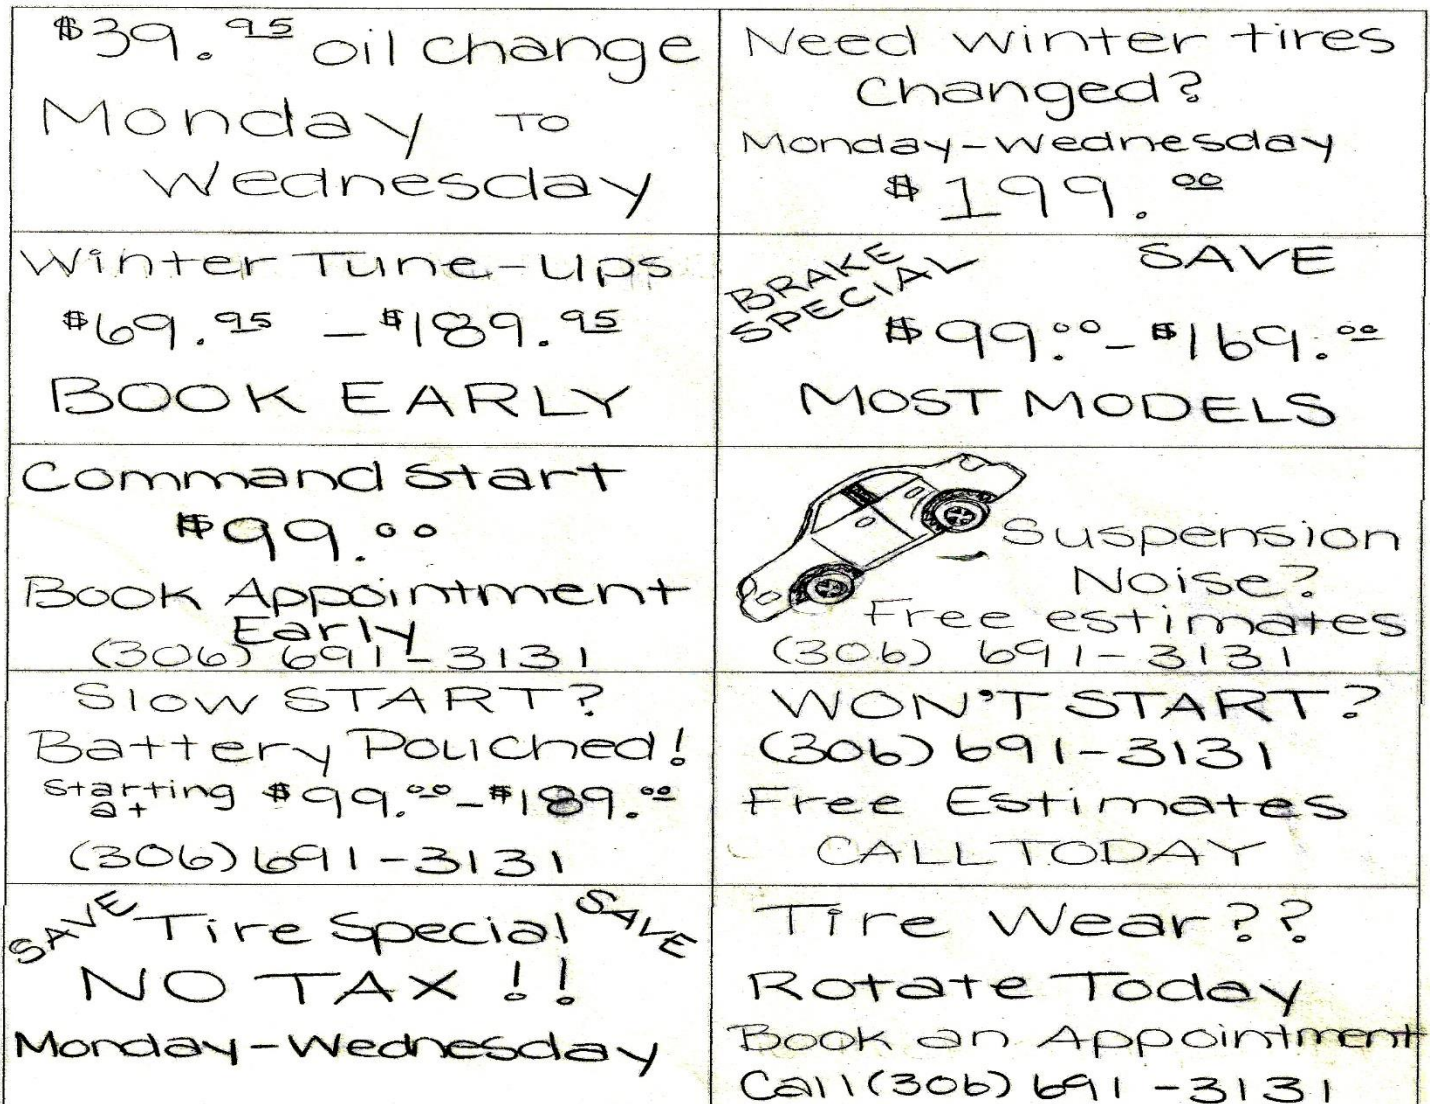 $39.95 oil change
Monday TO
Wednesday
Need winter tires
Changed?
Monday-Wednesday
$199.00
Winter Tune-Ups
$69.95 - $189.95
BOOK EARLY
BRAKE
SPECIAL
SAVE
$99.00-$169.00
MOST MODELS
Command Start
$99.00
Book Appointment
Early
(306) 691-3131
Suspension
Noise?
Free estimates
(306) 691-3131
Slow START?
Battery Pouched!
Starting
at
$99.00-$189.00
(306) 691-3131
WON'T START?
(306) 691-3131
Free Estimates
CALL TODAY
SAVE Tire Special SAVE
NO TAX !!
Monday-Wednesday
Tire Wear??
Rotate Today
Book an Appointment
Call (306) 691-3131